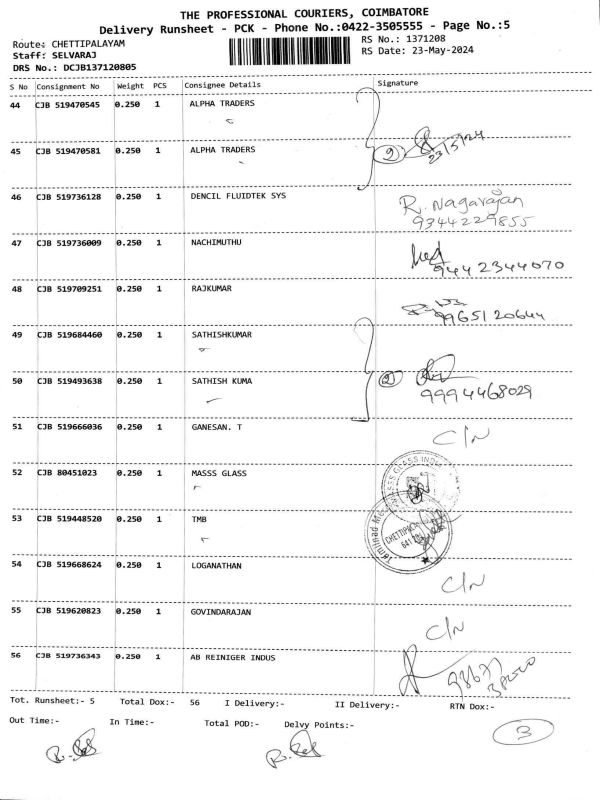 THE PROFESSIONAL COURIERS, COIMBATORE
Delivery Runsheet - PCK - Phone No.:0422-3505555 - Page No.:5
Route: CHETTIPALAYAM RS No.: 1371208
Staff: SELVARAJ RS Date: 23-May-2024
DRS No.: DCJB137120805
S No Consignment No Weight PCS Consignee Details Signature
44 CJB 519470545 0.250 1 ALPHA TRADERS
45 CJB 519470581 0.250 1 ALPHA TRADERS 2 23/5/24
46 CJB 519736128 0.250 1 DENCIL FLUIDTEK SYS R. Nagarajan
9344229855
47 CJB 519736009 0.250 1 NACHIMUTHU
9442344070
48 CJB 519709251 0.250 1 RAJKUMAR
9965120644
49 CJB 519684460 0.250 1 SATHISHKUMAR
50 CJB 519493638 0.250 1 SATHISH KUMA 2
9994468029
51 CJB 519666036 0.250 1 GANESAN. T C/N
52 CJB 80451023 0.250 1 MASSS GLASS
53 CJB 519448520 0.250 1 TMB
54 CJB 519668624 0.250 1 LOGANATHAN C/N
55 CJB 519620823 0.250 1 GOVINDARAJAN C/N
56 CJB 519736343 0.250 1 AB REINIGER INDUS
Tot. Runsheet:- 5 Total Dox:- 56 I Delivery:- II Delivery:- RTN Dox:-
Out Time:- In Time:- Total POD:- Delvy Points:-
3